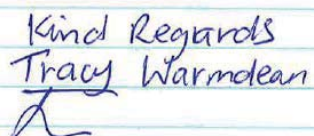 Kind Regards
Tracy Warmdean